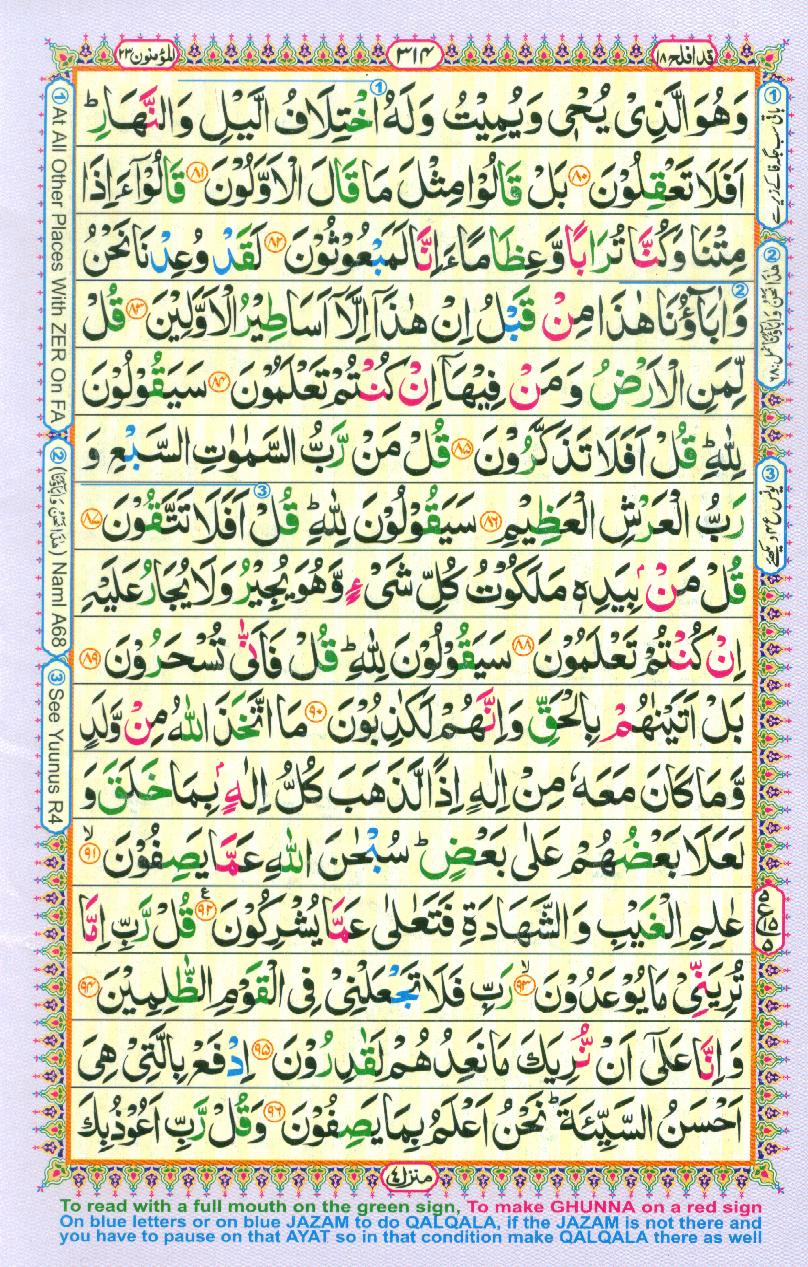 المؤمنون ٢٣
٣١٤
قد افلح ١٨
وَهُوَ الَّذِىْ يُحْىٖ وَيُمِيْتُ وَلَهُ اخْتِلَافُ الَّيْلِ وَالنَّهَارِ ؕ
اَفَلَا تَعْقِلُوْنَ ﴿۸۰﴾ بَلْ قَالُوْا مِثْلَ مَا قَالَ الْاَوَّلُوْنَ ﴿۸۱﴾ قَالُوْۤا ءَاِذَا
مِتْنَا وَكُنَّا تُرَابًا وَّعِظَامًا ءَاِنَّا لَمَبْعُوْثُوْنَ ﴿۸۲﴾ لَقَدْ وُعِدْنَا نَحْنُ
وَاٰبَآؤُنَا هٰذَا مِنْ قَبْلُ اِنْ هٰذَاۤ اِلَّاۤ اَسَاطِيْرُ الْاَوَّلِيْنَ ﴿۸۳﴾ قُلْ
لِّمَنِ الْاَرْضُ وَمَنْ فِيْهَاۤ اِنْ كُنْتُمْ تَعْلَمُوْنَ ﴿۸۴﴾ سَيَقُوْلُوْنَ
لِلّٰهِ ؕ قُلْ اَفَلَا تَذَكَّرُوْنَ ﴿۸۵﴾ قُلْ مَنْ رَّبُّ السَّمٰوٰتِ السَّبْعِ وَ
رَبُّ الْعَرْشِ الْعَظِيْمِ ﴿۸۶﴾ سَيَقُوْلُوْنَ لِلّٰهِ ؕ قُلْ اَفَلَا تَتَّقُوْنَ ﴿۸۷﴾
قُلْ مَنْۢ بِيَدِهٖ مَلَكُوْتُ كُلِّ شَىْءٍ وَّهُوَ يُجِيْرُ وَلَا يُجَارُ عَلَيْهِ
اِنْ كُنْتُمْ تَعْلَمُوْنَ ﴿۸۸﴾ سَيَقُوْلُوْنَ لِلّٰهِ ؕ قُلْ فَاَنّٰى تُسْحَرُوْنَ ﴿۸۹﴾
بَلْ اَتَيْنٰهُمْ بِالْحَقِّ وَاِنَّهُمْ لَكٰذِبُوْنَ ﴿۹۰﴾ مَا اتَّخَذَ اللّٰهُ مِنْ وَّلَدٍ
وَّمَا كَانَ مَعَهٗ مِنْ اِلٰهٍ اِذًا لَّذَهَبَ كُلُّ اِلٰهٍۢ بِمَا خَلَقَ وَ
لَعَلَا بَعْضُهُمْ عَلٰى بَعْضٍ ؕ سُبْحٰنَ اللّٰهِ عَمَّا يَصِفُوْنَ ۙ﴿۹۱﴾
عٰلِمِ الْغَيْبِ وَالشَّهَادَةِ فَتَعٰلٰى عَمَّا يُشْرِكُوْنَ ﴿۹۲﴾ۧ قُلْ رَّبِّ اِمَّا
تُرِيَنِّىْ مَا يُوْعَدُوْنَ ۙ﴿۹۳﴾ رَبِّ فَلَا تَجْعَلْنِىْ فِى الْقَوْمِ الظّٰلِمِيْنَ ﴿۹۴﴾
وَاِنَّا عَلٰٓى اَنْ نُّرِيَكَ مَا نَعِدُهُمْ لَقٰدِرُوْنَ ﴿۹۵﴾ اِدْفَعْ بِالَّتِىْ هِىَ
اَحْسَنُ السَّيِّئَةَ ؕ نَحْنُ اَعْلَمُ بِمَا يَصِفُوْنَ ﴿۹۶﴾ وَقُلْ رَّبِّ اَعُوْذُ بِكَ
منزل ٤
① At All Other Places With ZER On FA
② (هٰذَا نَحْنُ وَاٰبَاؤُنَا) Naml A68
③ See Yuunus R4
To read with a full mouth on the green sign, To make GHUNNA on a red sign
On blue letters or on blue JAZAM to do QALQALA, if the JAZAM is not there and
you have to pause on that AYAT so in that condition make QALQALA there as well